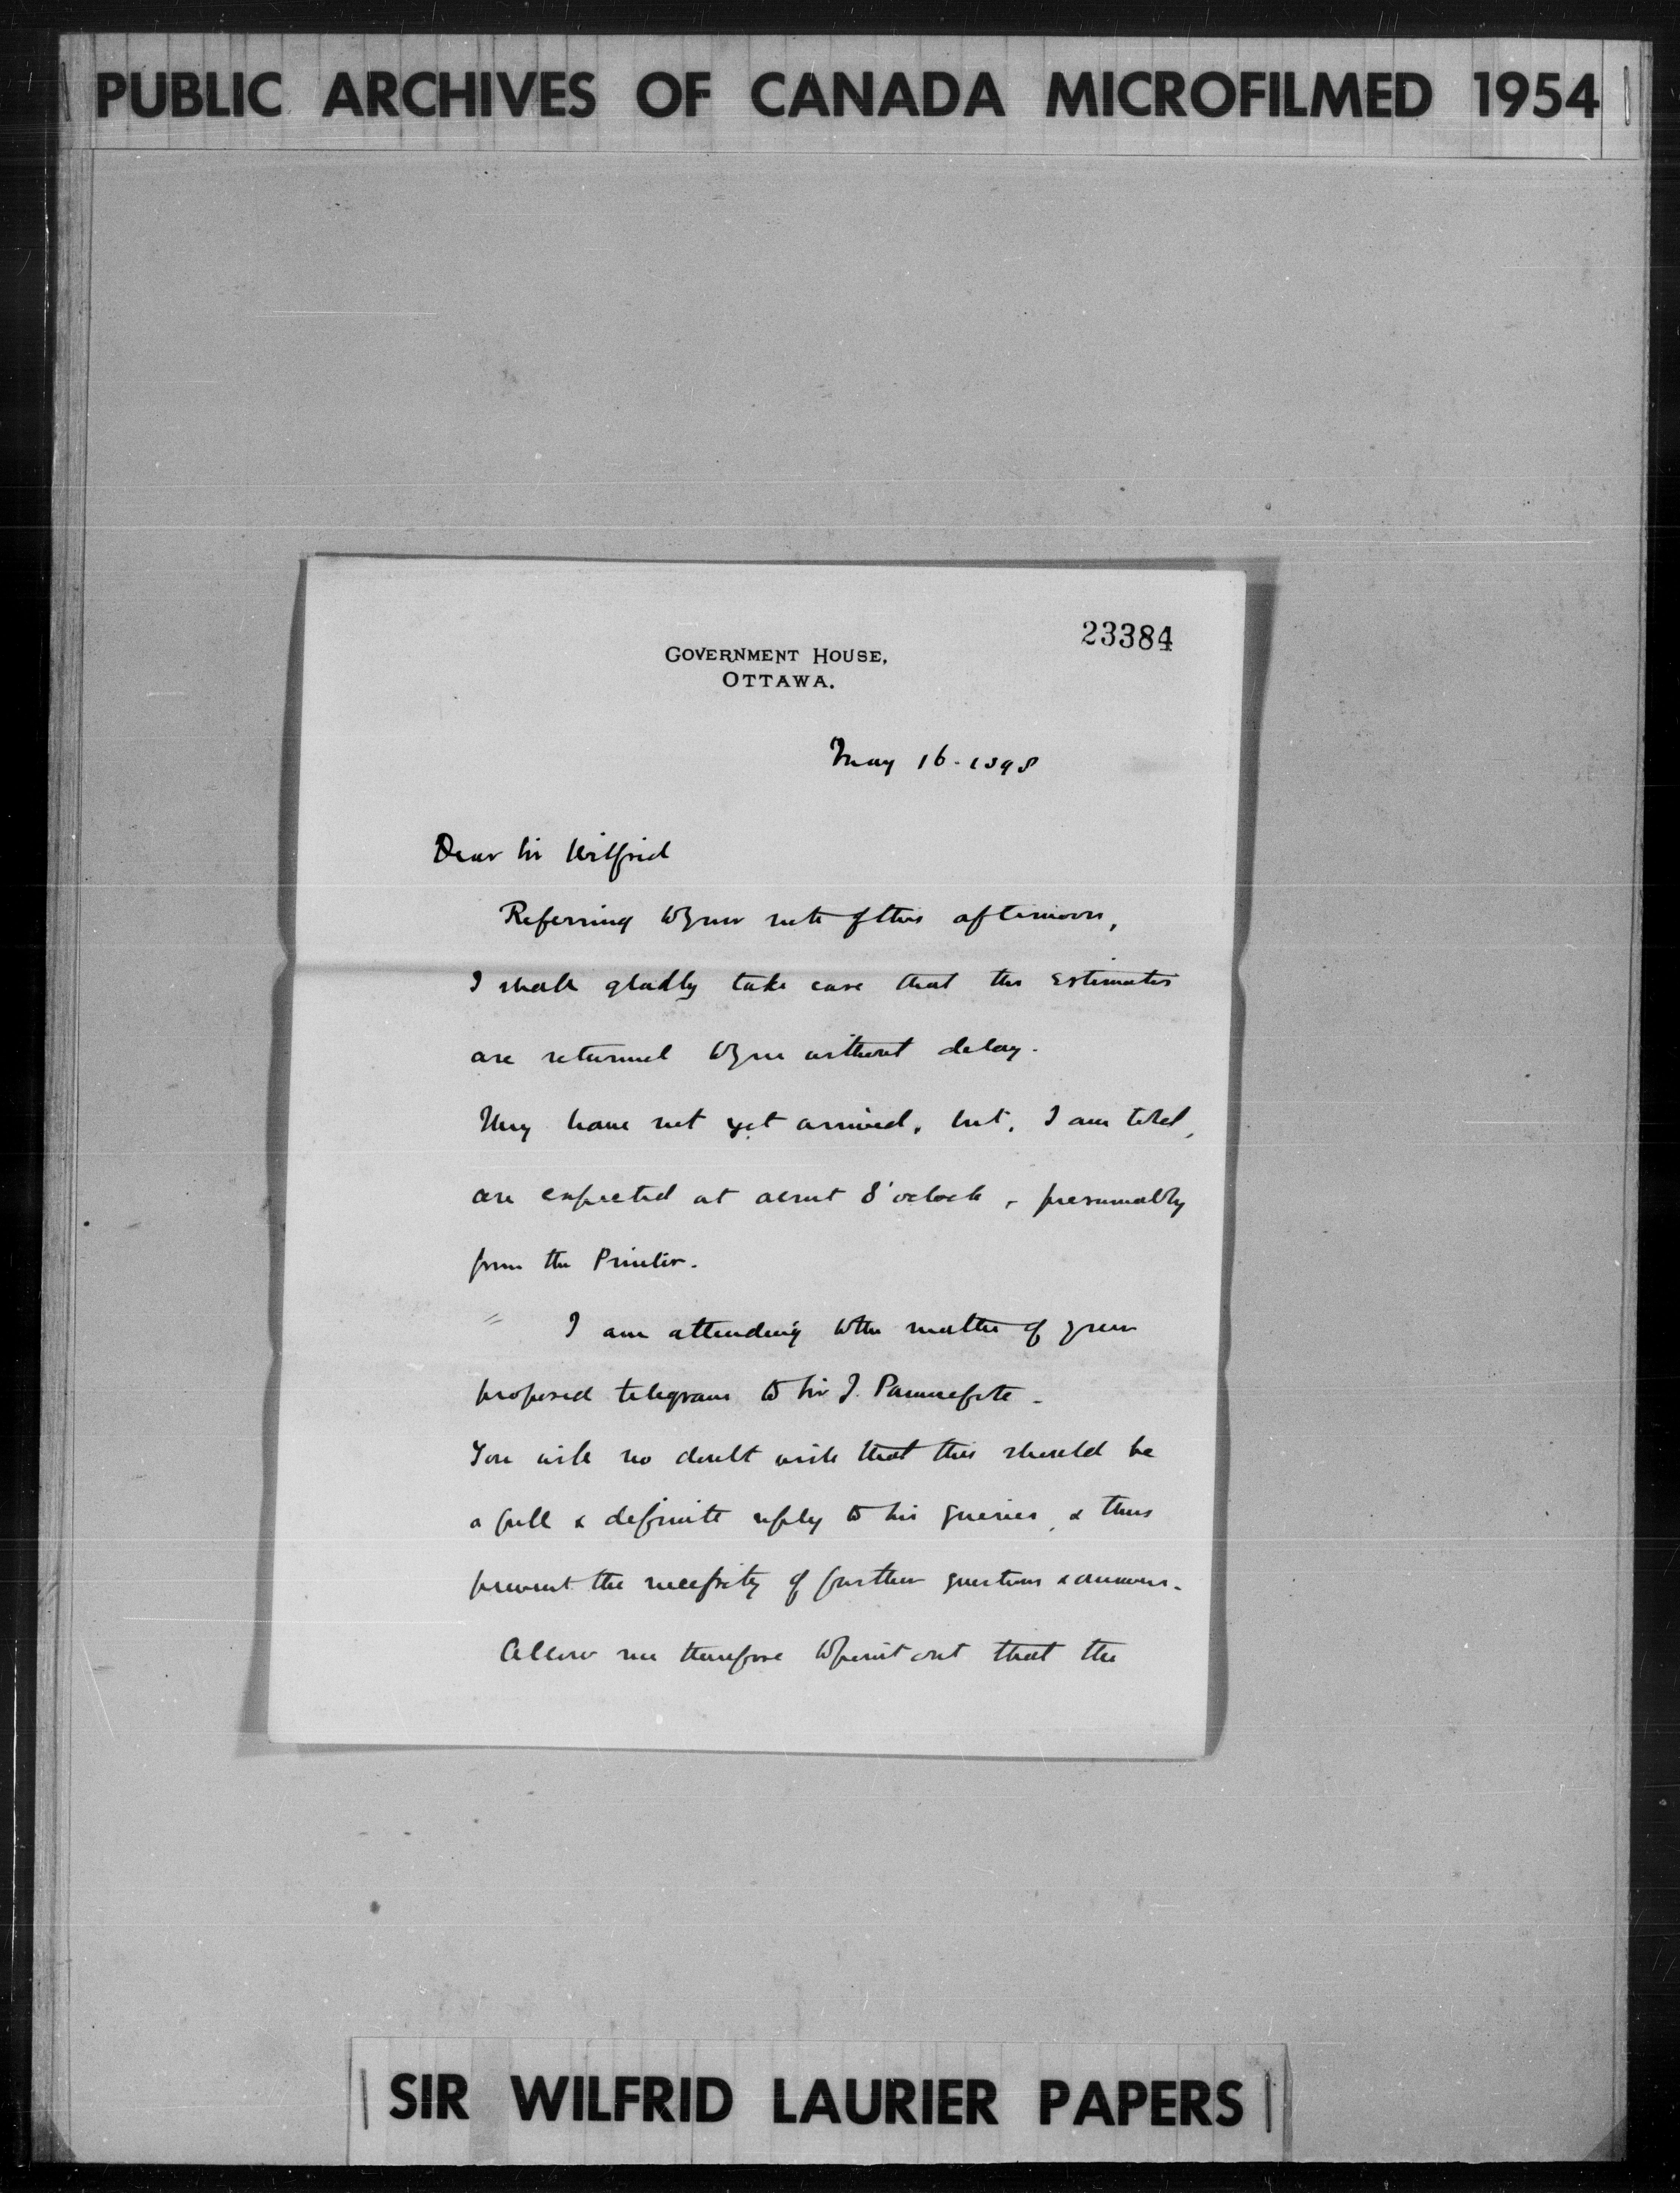 PUBLIC ARCHIVES OF CANADA MICROFILMED 1954
23384
GOVERNMENT HOUSE,
OTTAWA.
May 16. 1898
Dear Sir Wilfrid
Referring to your note of this afternoon,
I shall gladly take care that the Estimates
are returned to you without delay.
They have not yet arrived, but, I am told,
are expected at about 8 o'clock, presumably
from the Printer.
I am attending to the matter of your
proposed telegram to Sir J. Pauncefote.
You will no doubt wish that this should be
a full & definite reply to his queries, & thus
prevent the necessity of further questions & answers.
Allow me therefore to point out that the
SIR WILFRID LAURIER PAPERS